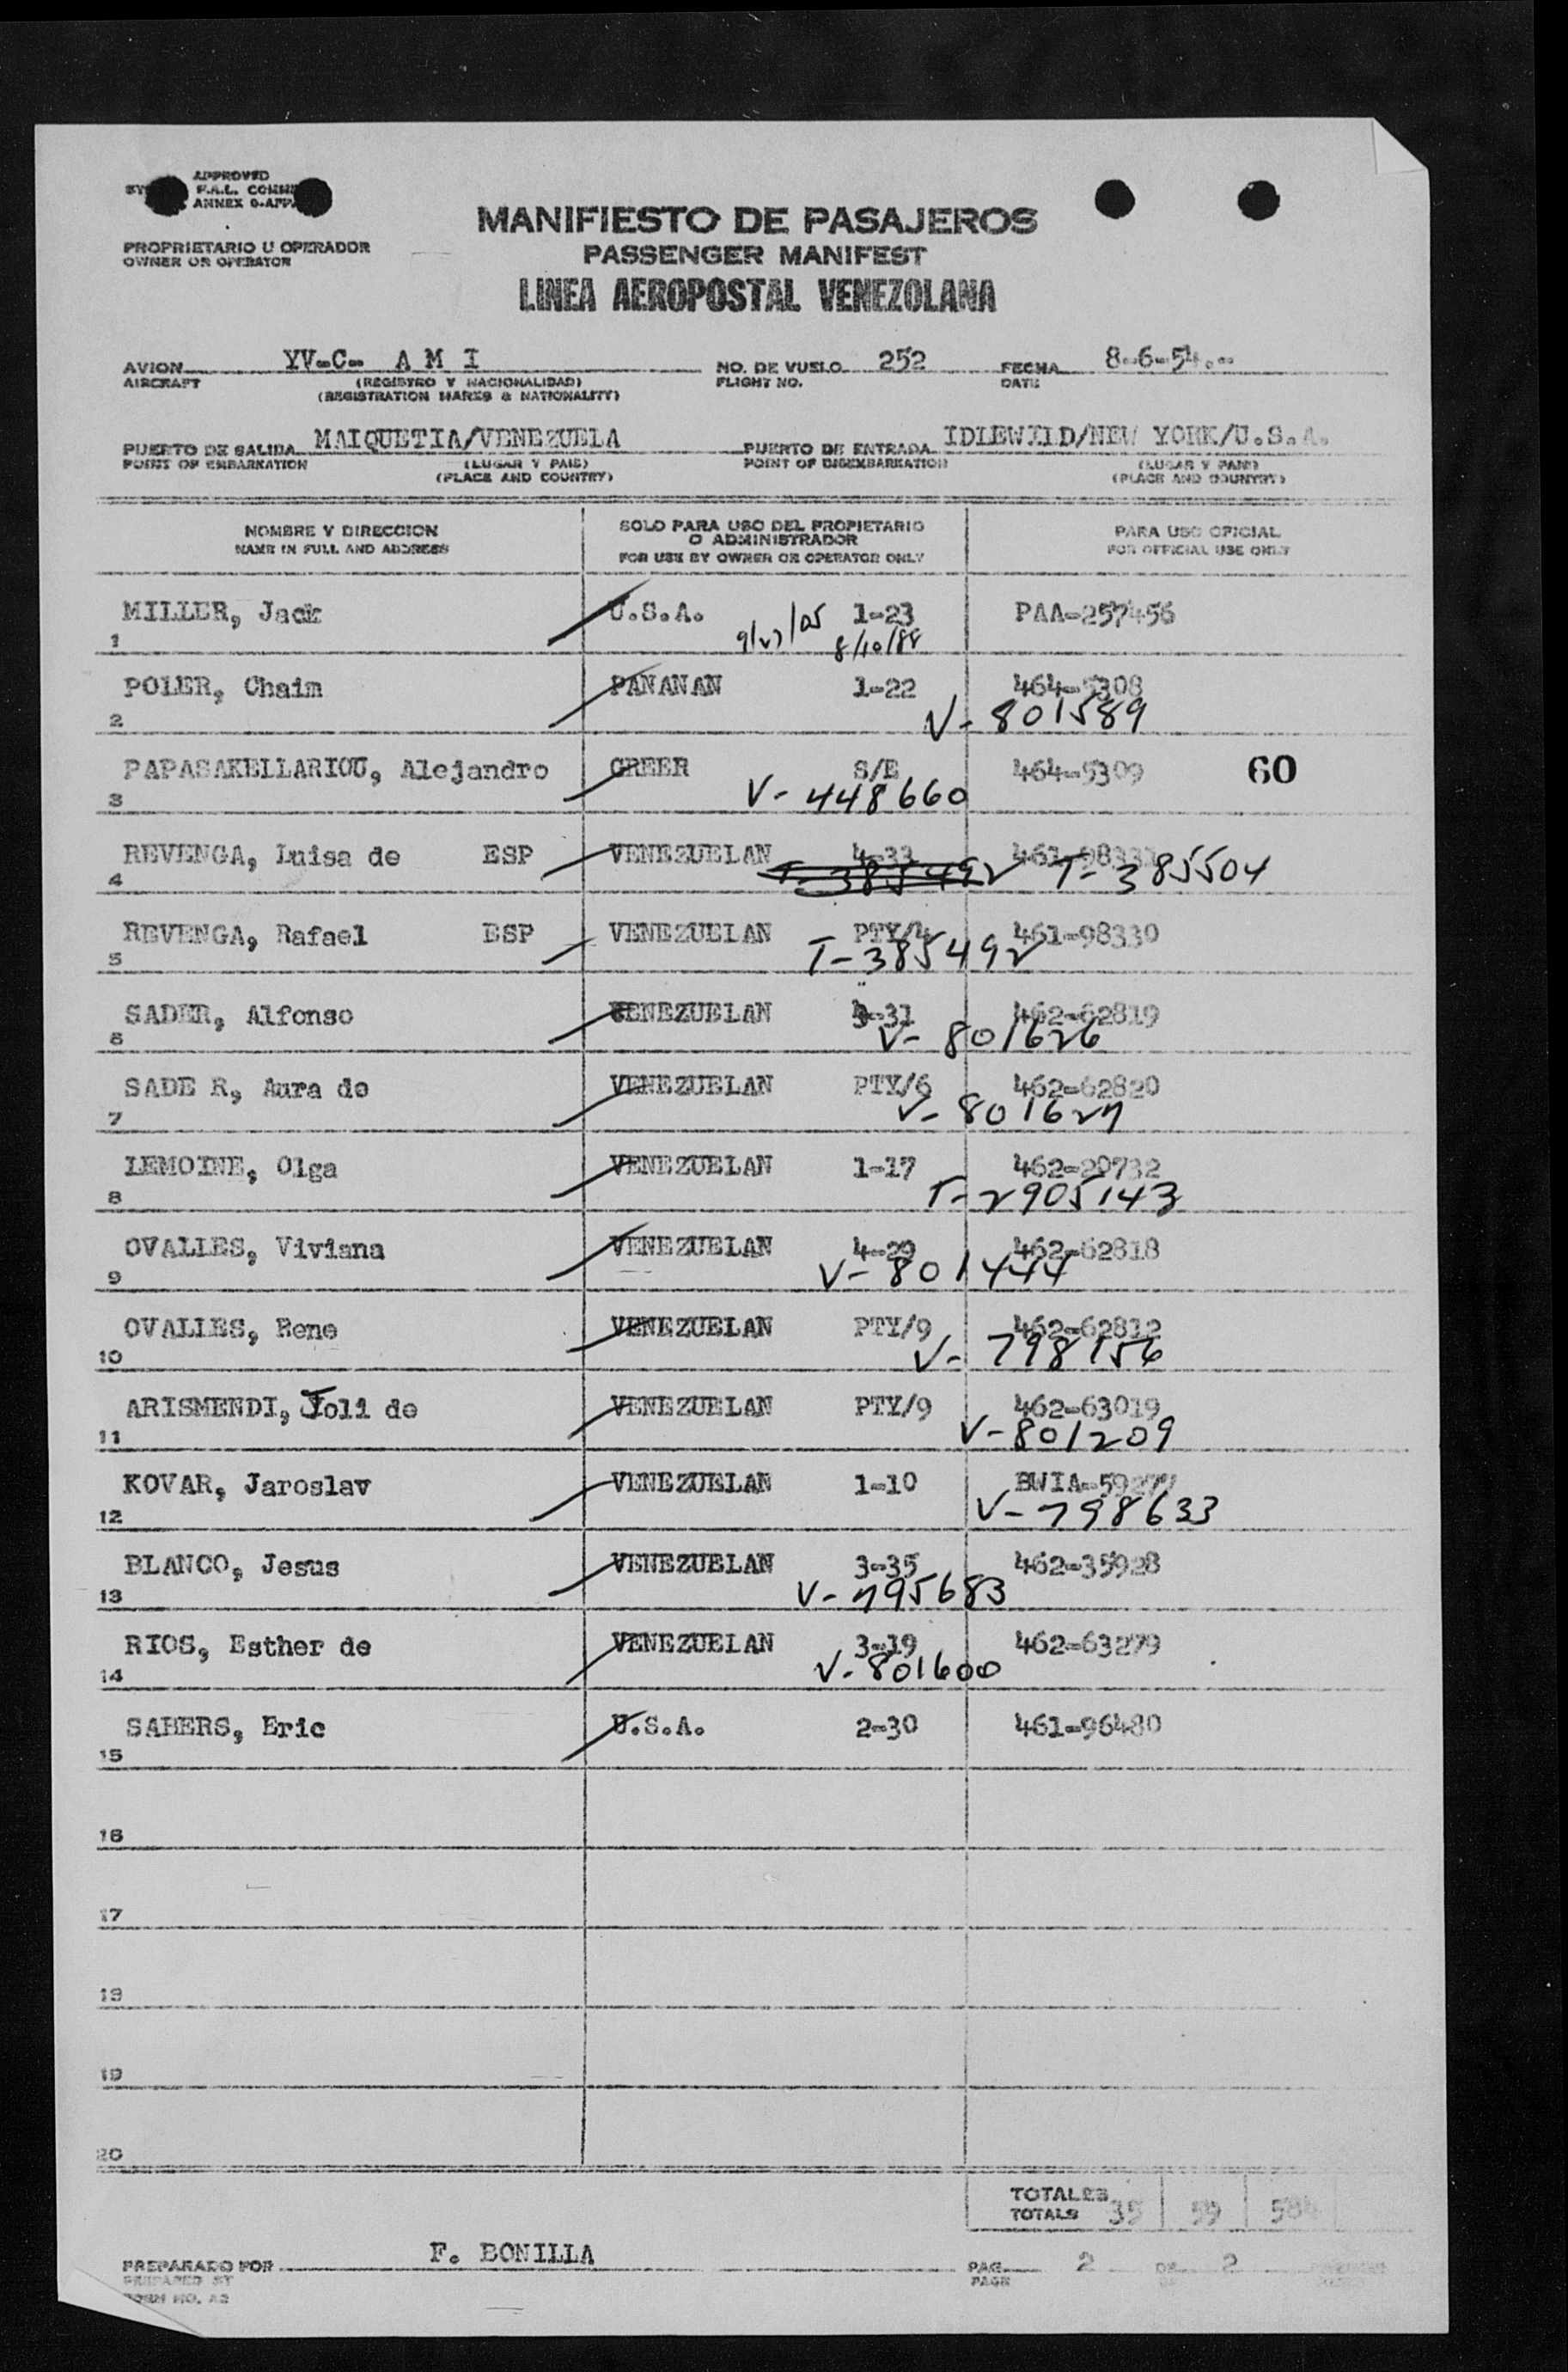 APPROVED
BY F.A.L. COMMI
ANNEX 9-APP.
MANIFIESTO DE PASAJEROS
PASSENGER MANIFEST
LINEA AEROPOSTAL VENEZOLANA
PROPRIETARIO U OPERADOR
OWNER OR OPERATOR
AVION YV-C- A M I NO. DE VUELO 252 FECHA 8-6-54.-
AIRCRAFT (REGISTRO Y NACIONALIDAD) FLIGHT NO. DATE
(REGISTRATION MARKS & NATIONALITY)
PUERTO DE SALIDA MAIQUETIA/VENEZUELA PUERTO DE ENTRADA IDLEWILD/NEW YORK/U.S.A.
POINT OF EMBARKATION (LUGAR Y PAIS) POINT OF DISEMBARKATION (LUGAR Y PAIS)
(PLACE AND COUNTRY) (PLACE AND COUNTRY)
NOMBRE Y DIRECCION SOLO PARA USO DEL PROPIETARIO PARA USO OFICIAL
O ADMINISTRADOR
NAME IN FULL AND ADDRESS FOR USE BY OWNER OR OPERATOR ONLY FOR OFFICIAL USE ONLY
MILLER, Jack U.S.A. 1-23 PAA-257456
1 8/10/88
POLER, Chaim PANANAN 1-22 464-5308
2 V-801589
PAPASAKELLARIOU, Alejandro GREER S/E 464-5309 60
3 V-448660
REVENGA, Luisa de ESP VENEZUELAN 4-33
4 T-385492 T-385504
REVENGA, Rafael ESP VENEZUELAN PTY/4 461-98330
5 T-385492
SADER, Alfonso VENEZUELAN 3-31 462-62819
6 V-801626
SADE R, Aura de VENEZUELAN PTY/6 462-62820
7 V-801627
LEMOINE, Olga VENEZUELAN 1-17 462-20732
8 T-2905143
OVALLES, Viviana VENEZUELAN 4-29 462-62818
9 V-801444
OVALLES, Rene VENEZUELAN PTY/9 462-62812
10 V-798156
ARISMENDI, Joli de VENEZUELAN PTY/9 462-63019
11 V-801209
KOVAR, Jaroslav VENEZUELAN 1-10 BWIA-59277
12 V-798633
BLANCO, Jesus VENEZUELAN 3-35 462-35928
13 V-795683
RIOS, Esther de VENEZUELAN 3-19 462-63279
14 V-801600
SABERS, Eric U.S.A. 2-30 461-96480
15
16
17
18
19
20
TOTALES
TOTALS 35 59 584
PREPARADO POR F. BONILLA PAG. 2 DE 2
PREPARED BY PAGE
FORM NO. A2